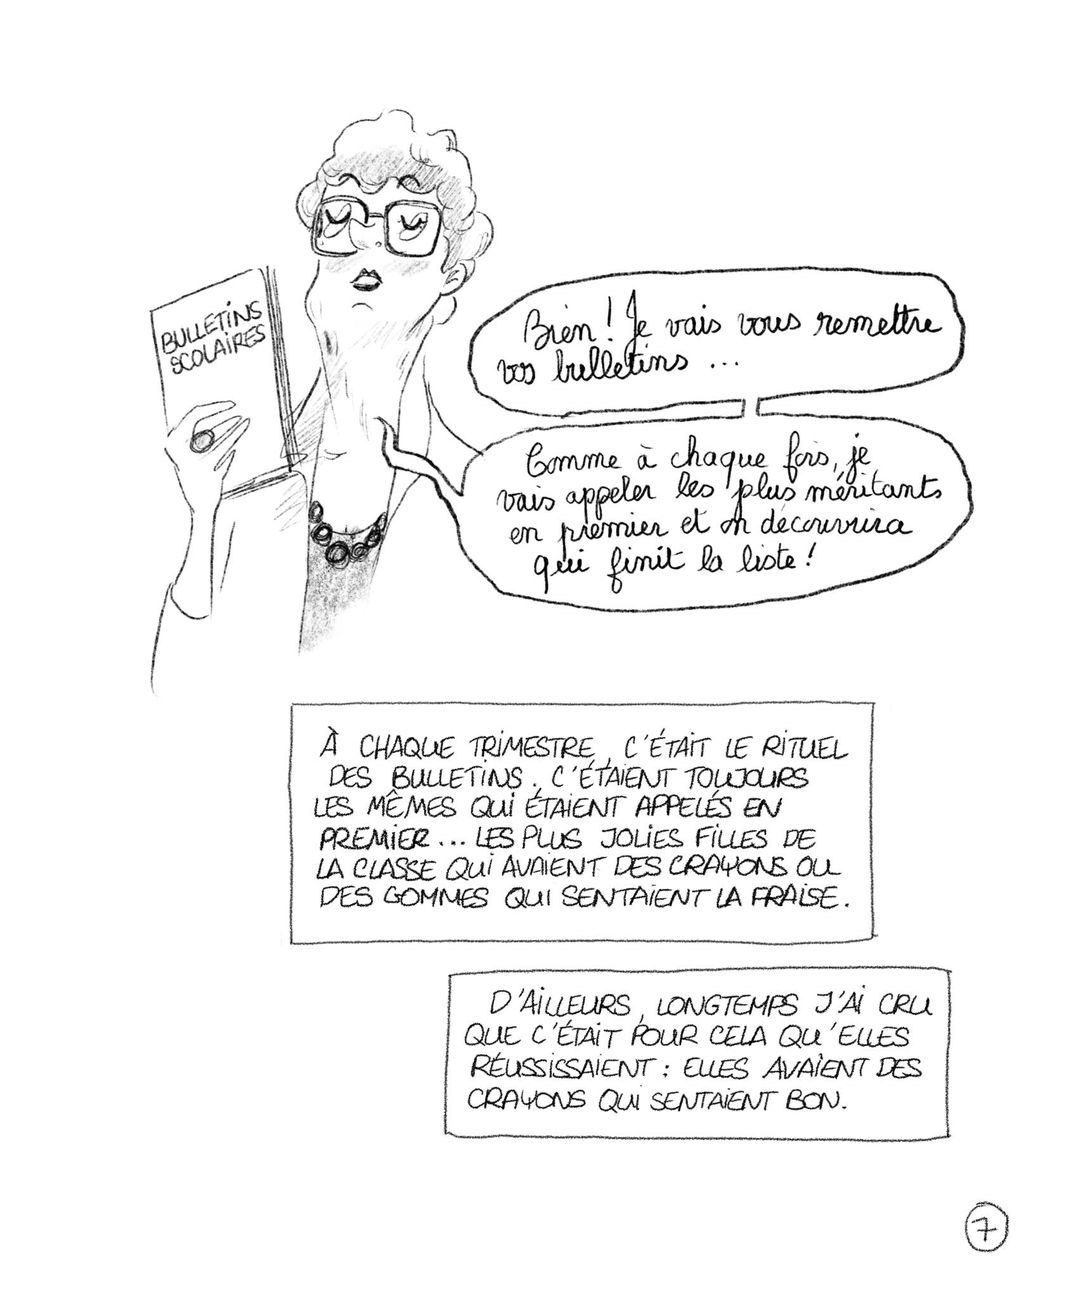 BULLETINS
SCOLAIRES
Bien ! Je vais vous remettre
vos bulletins ...
Comme à chaque fois, je
vais appeler les plus méritants
en premier et on découvrira
qui finit la liste !
À CHAQUE TRIMESTRE, C'ÉTAIT LE RITUEL
DES BULLETINS. C'ÉTAIENT TOUJOURS
LES MÊMES QUI ÉTAIENT APPELÉS EN
PREMIER... LES PLUS JOLIES FILLES DE
LA CLASSE QUI AVAIENT DES CRAYONS OU
DES GOMMES QUI SENTAIENT LA FRAISE.
D'AILLEURS, LONGTEMPS J'AI CRU
QUE C'ÉTAIT POUR CELA QU'ELLES
RÉUSSISSAIENT : ELLES AVAIENT DES
CRAYONS QUI SENTAIENT BON.
7